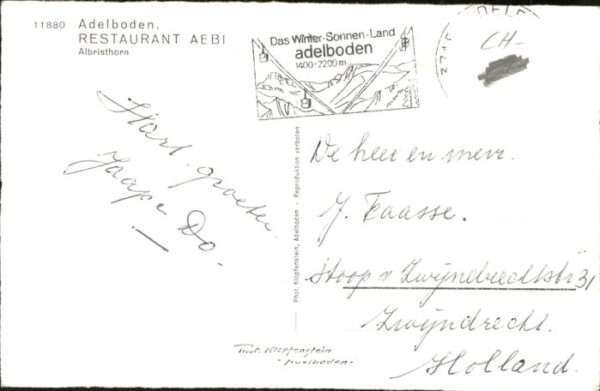 11880 Adelboden.
RESTAURANT AEBI
Albristhorn
Das Winter-Sonnen-Land
adelboden
1400-2200m
CH-
Hart. groeten
Jaap & Do.
Phot. Klopfenstein, Adelboden - Reproduction verboten
De heer en mevr.
J. Faasse.
Stoop v Zwijndrechtstr 31
Zwijndrecht.
Holland.
Phot. Klopfenstein
- Adelboden -